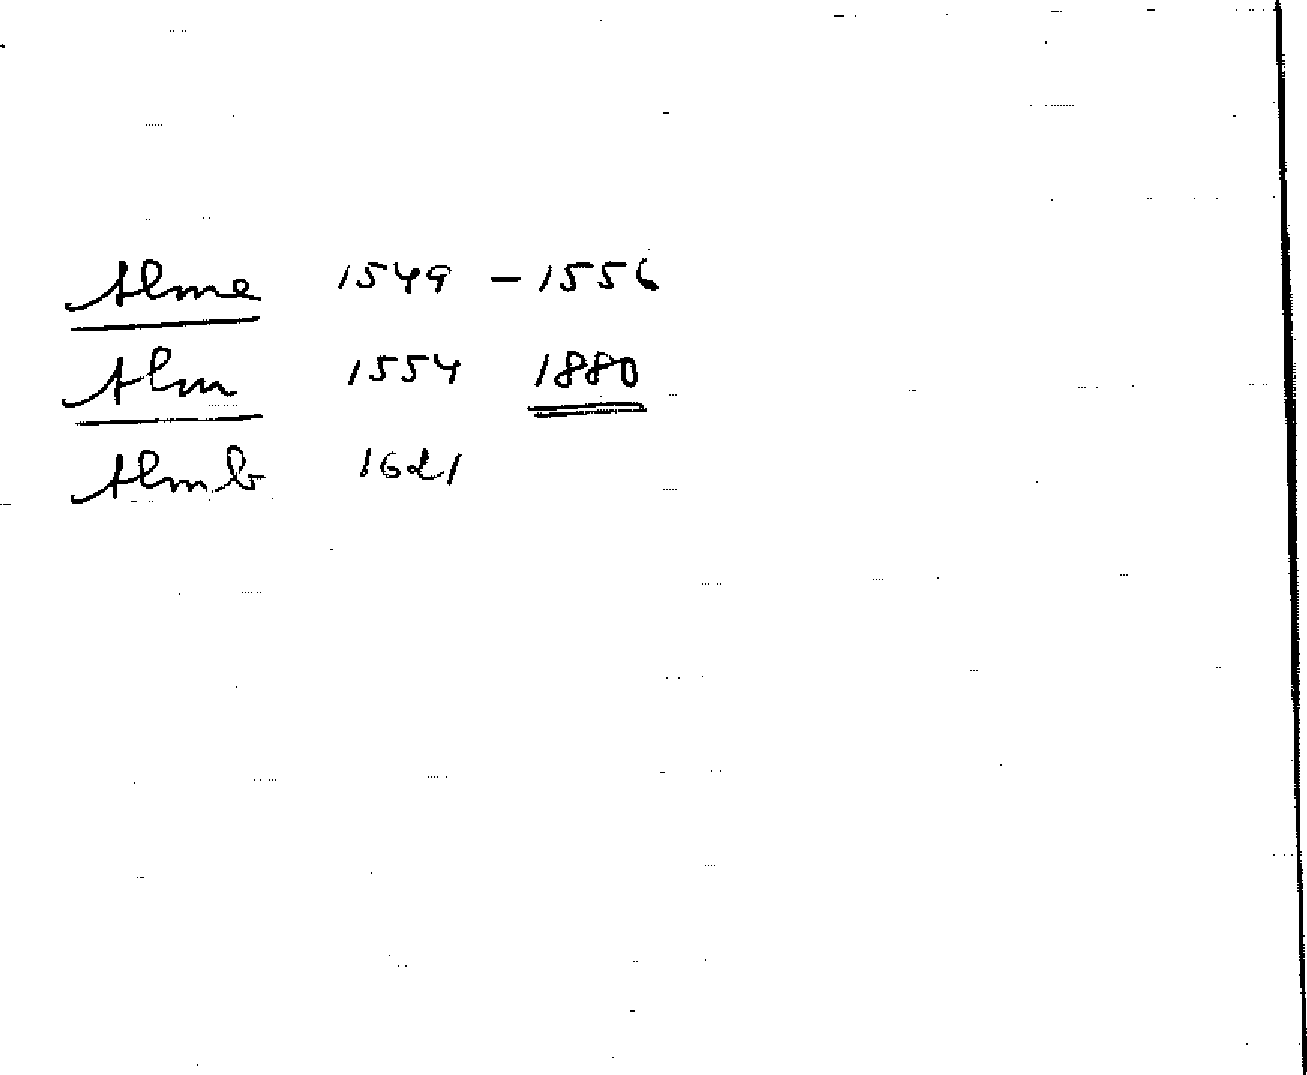 Alme 1549 - 1556
Alm 1554 1880
Almb 1621